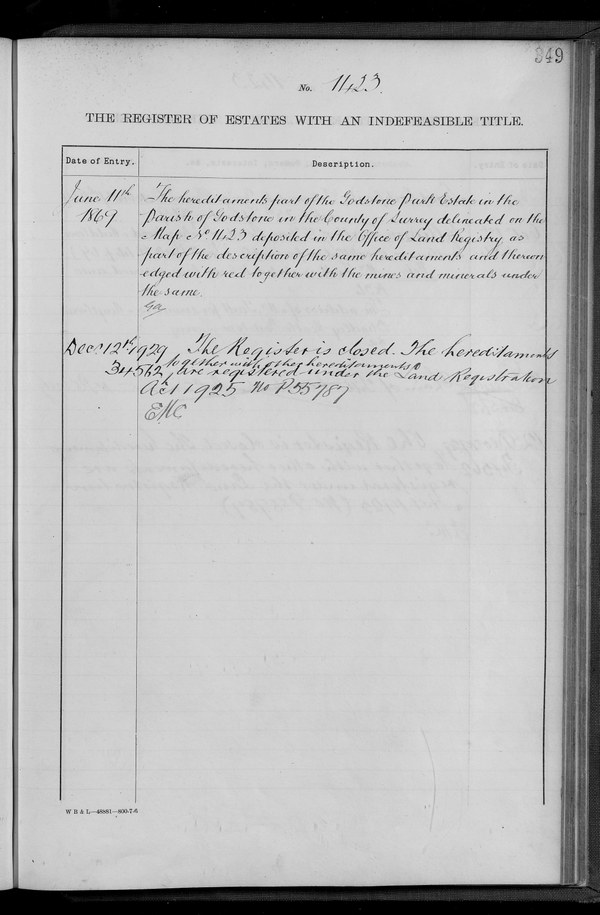 349
No. 1423.
THE REGISTER OF ESTATES WITH AN INDEFEASIBLE TITLE.
Date of Entry.
Description.
June 11th
1869
The hereditaments part of the Godstone Park Estate in the
Parish of Godstone in the County of Surrey delineated on the
Map No 1423 deposited in the Office of Land Registry as
part of the description of the same hereditaments and thereon
edged with red together with the mines and minerals under
the same.
Decr 12th 1929 The Register is closed. The hereditaments
together with other hereditaments
34562 are registered under the Land Registration
Act 1925 No P55787
W B & L.—48881—800-7-6